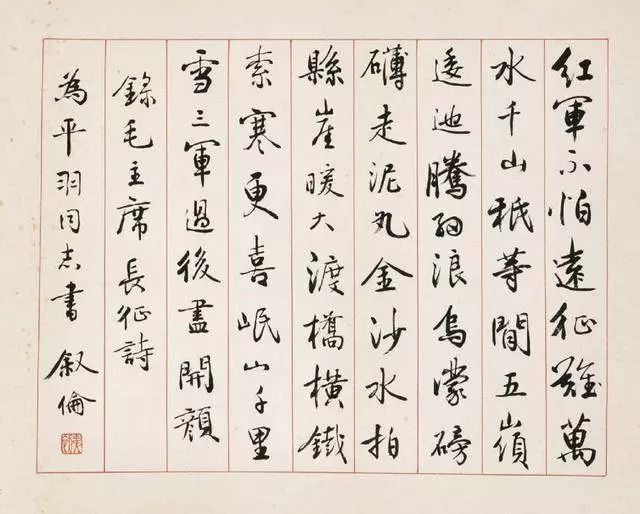 紅軍不怕遠征難萬
水千山秖等閒五嶺
逶迤騰細浪烏濛磅
礴走泥丸金沙水拍
縣崖暖大渡橋橫鐵
索寒更喜岷山千里
雪三軍過後盡開顏
錄毛主席長征詩
為平羽同志書 叙倫